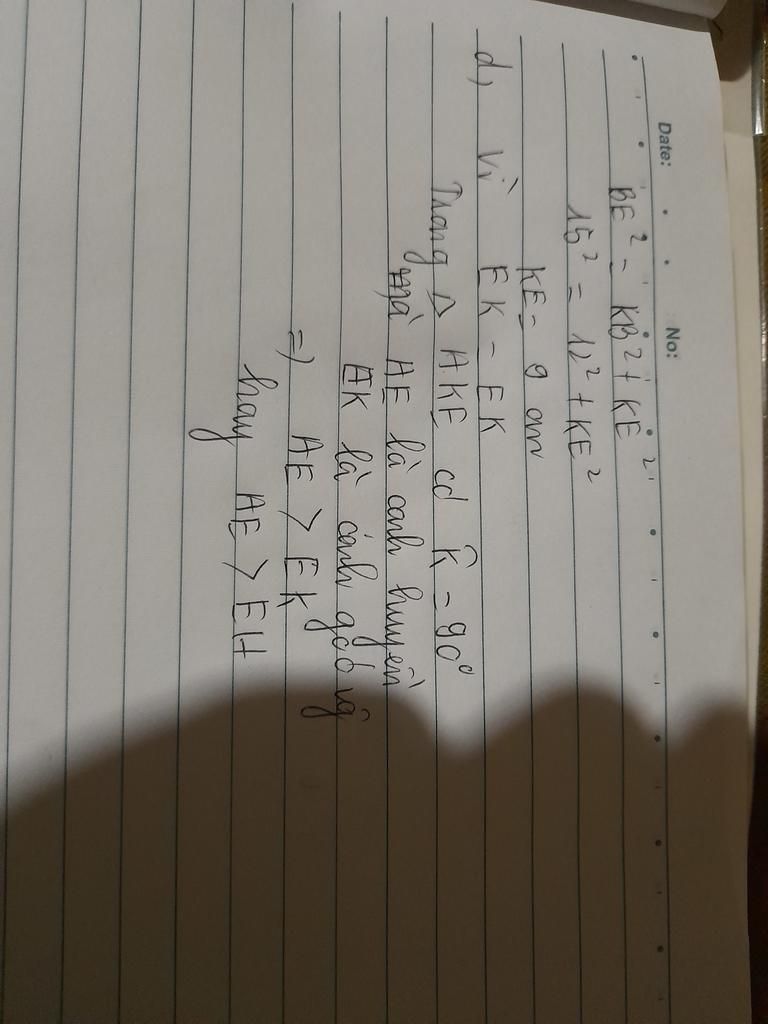 Date: No:
BE² = KB² + KE²
15² = 12² + KE²
KE = 9 cm
d, Vì EK = EK
Trong △ AKE có K̂ = 90°
mà AE là cạnh huyền
EK là cạnh góc vg
=> AE > EK
hay AE > EH